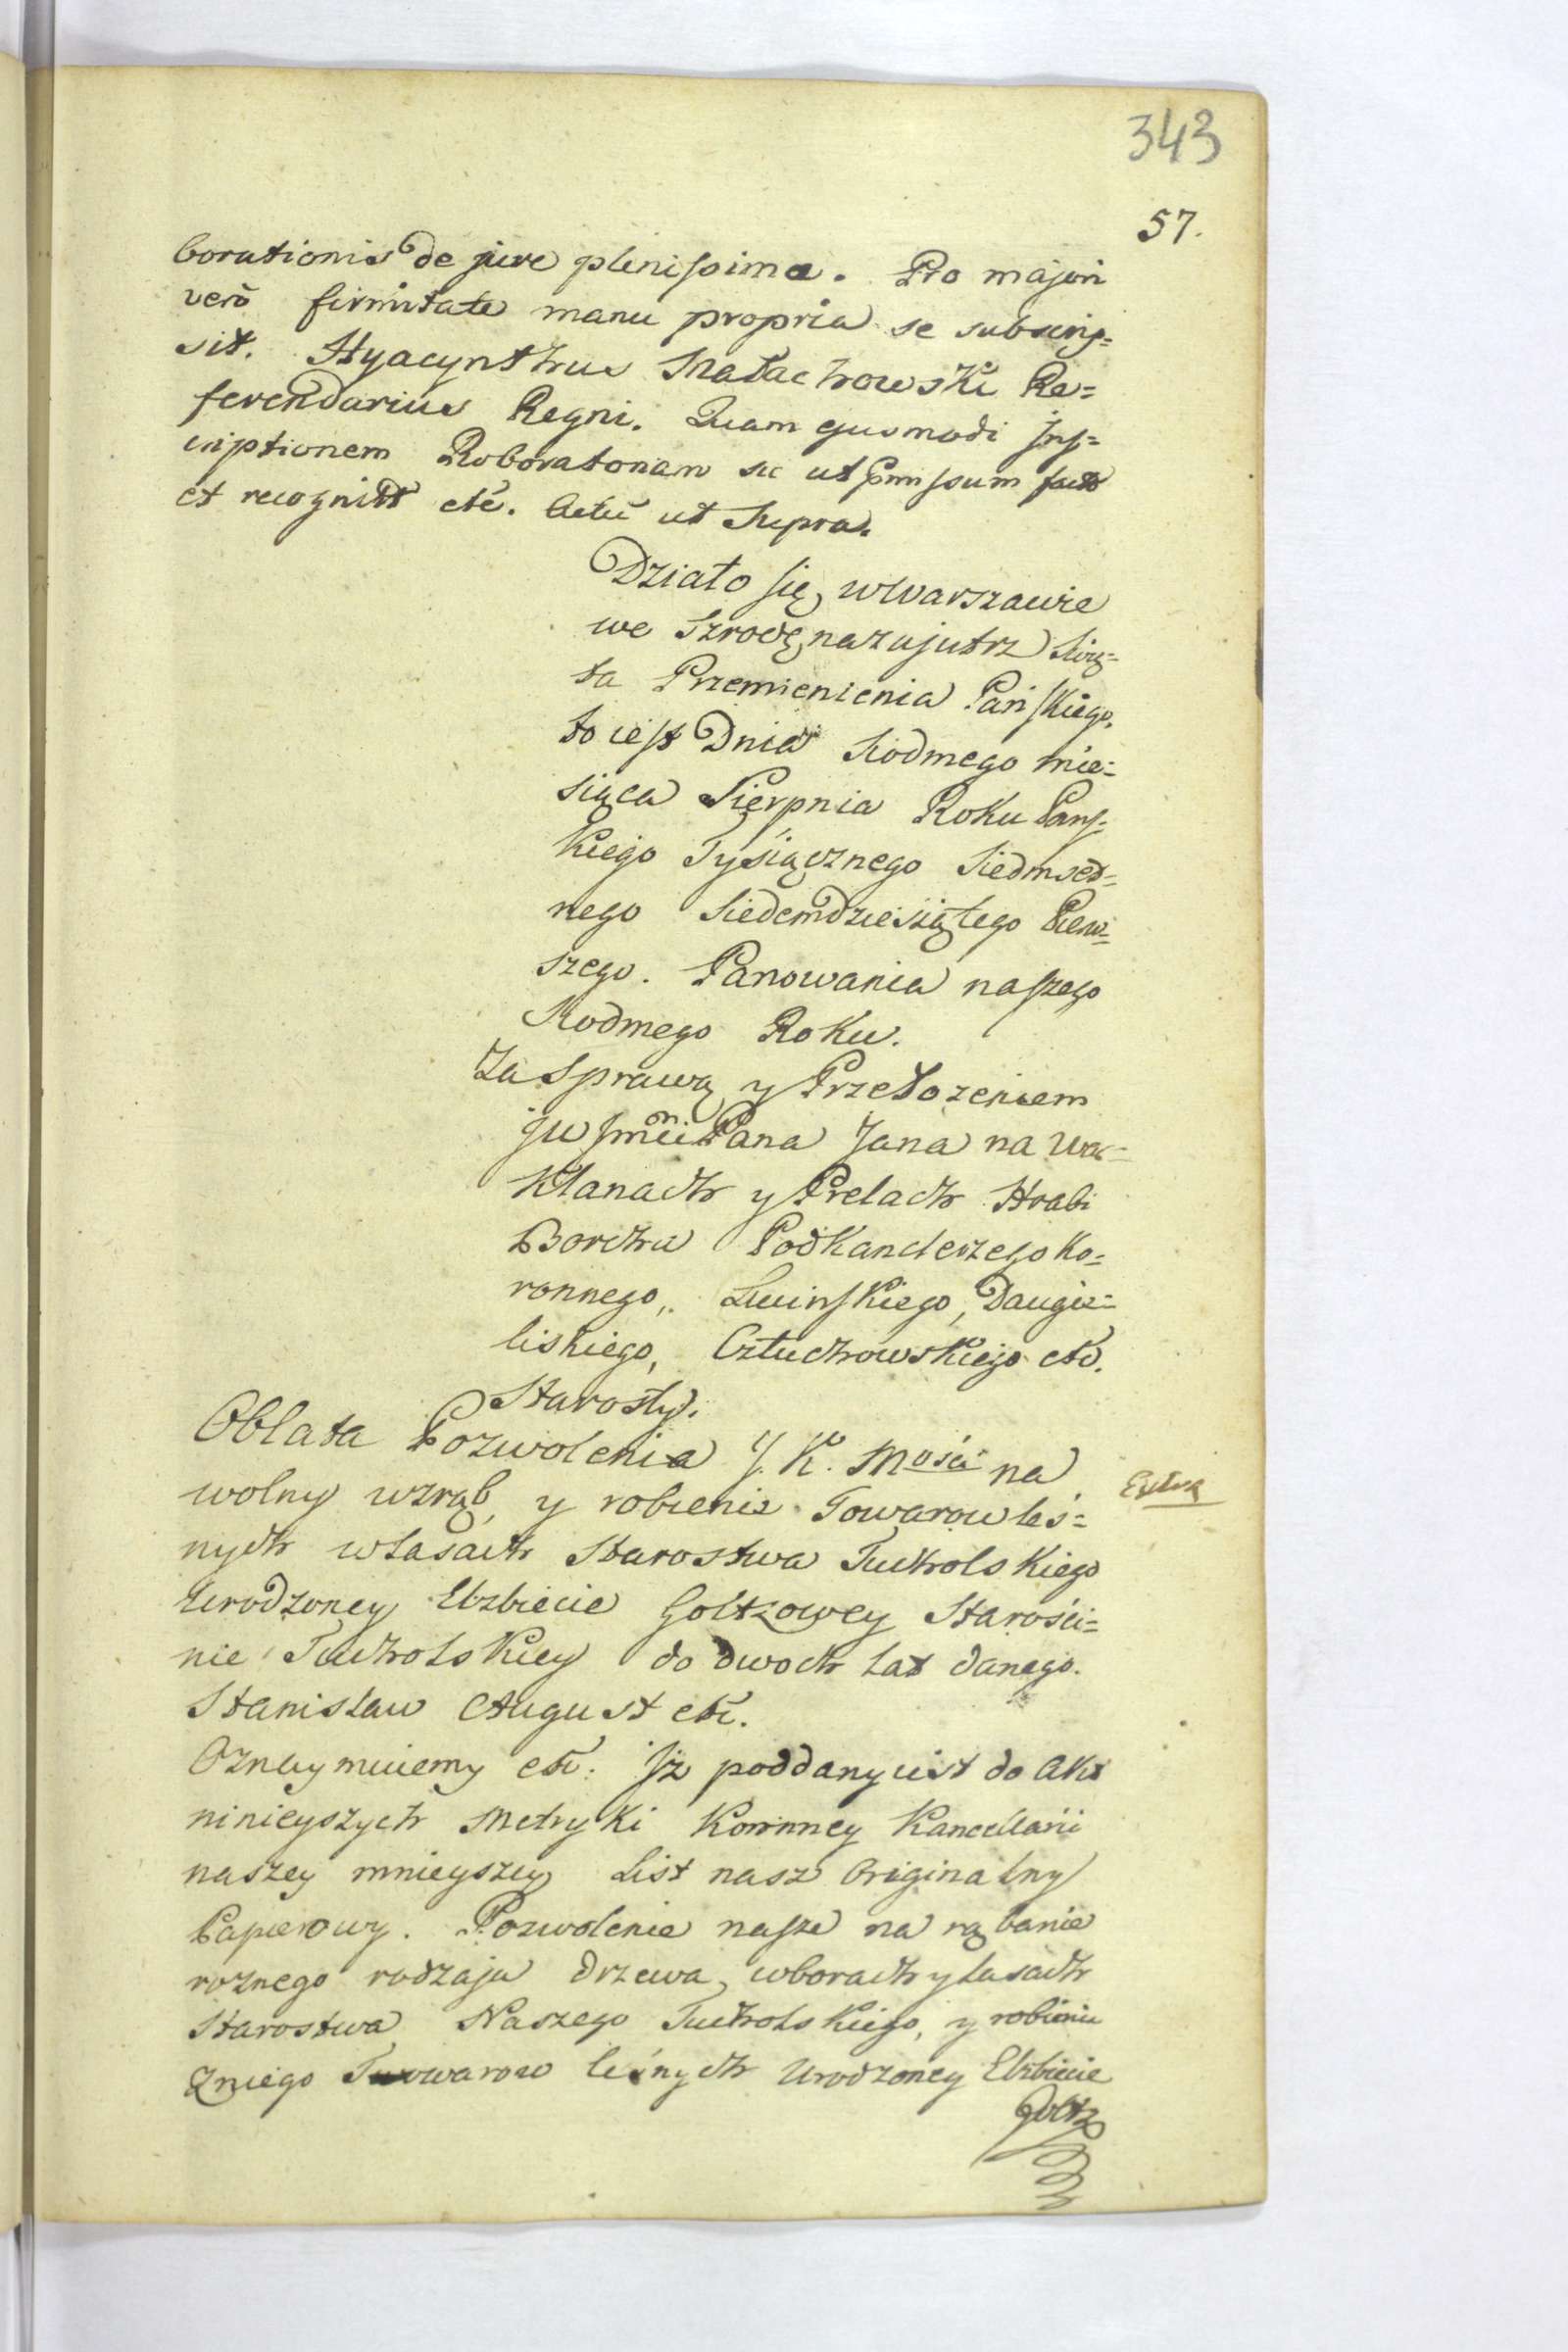 343
57.
borationis de jure plenissima. Pro majori
vero firmitate manu propria se subscrip=
sit. Hyacynthus Małachowski Re=
ferendarius Regni. Quam ejusmodi Ins=
criptionem Roboratoriam sic ut pmissum
et recognitt etc. Actũ ut Supra.
Działo się w Warszawie
we Szrodę nazajutrz Swię=
ta Przemienienia Pańskiego,
to iest Dnia Siodmego mie=
siąca Sierpnia Roku Pańs=
kiego Tysiącznego Siedmset=
nego Siedemdziesiątego Pierw=
szego. Panowania naszego
Siodmego Roku.
Za Sprawą y Przełozeniem
JW Jmci Pana Jana na War=
klanach y Prelach Hrabi
Borcha Podkanclerzego Ko=
ronnego, Lucinskiego, Daugie=
liskiego, Człuchowskiego etc.
Starosty.
Oblata Pozwolenia J. K. Mości na
Extra
wolny wzrąb, y robienie Towarow leś=
nych w lasach Starostwa Tucholskiego
Urodzoney Elzbiecie Goltzowey Starości=
nie Tucholskiey do dwoch lat danego.
Stanisław August etc.
Oznaymuiemy etc. Jż poddany iest do Akt
ninieyszych Metryki Koronney Kancellarii
naszey mnieyszey List nasz Originalny
Papierowy. Pozwolenie nasze na rąbanie
roznego rodzaju drzewa, w borach y lasach
Starostwa Naszego Tucholskiego, y robienie
z niego Towarow leśnych Urodzoney Elzbiecie
Goltz